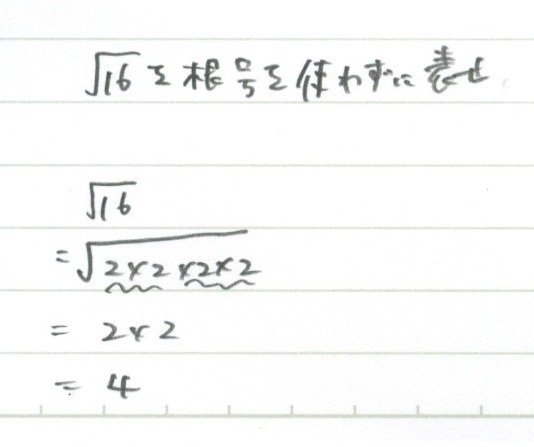 √16を根号を使わずに表せ
√16
=√2×2×2×2
= 2×2
= 4